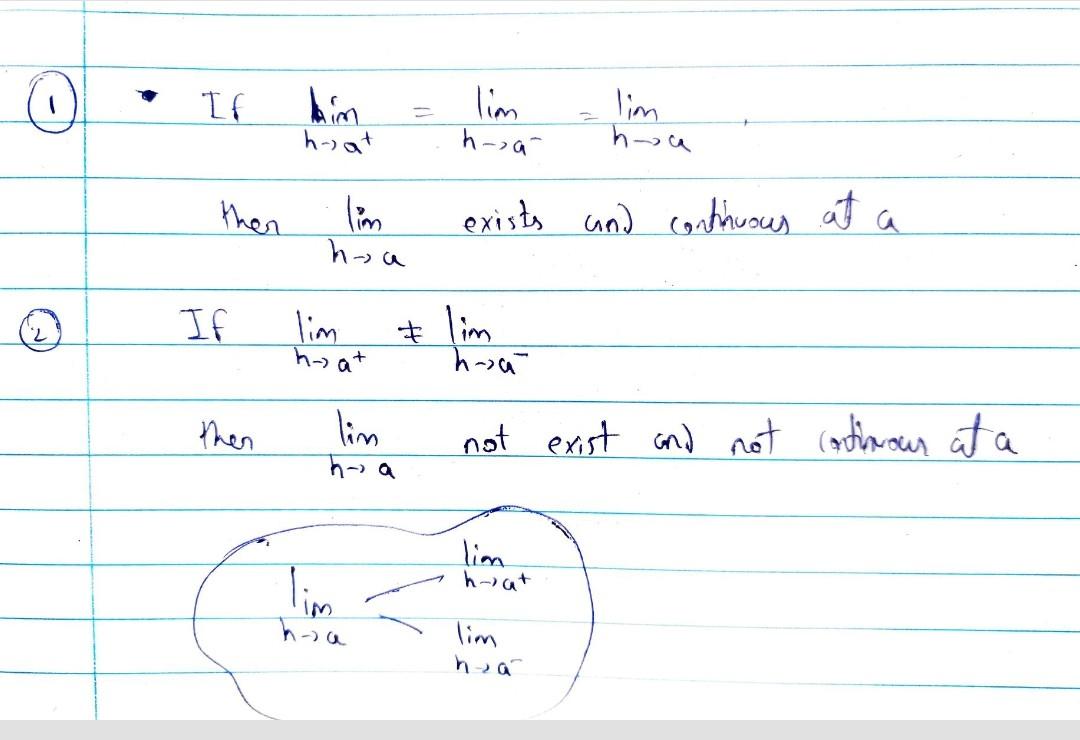 ① • If lim = lim = lim ,
h→a⁺ h→a⁻ h→a
then lim exists and continuous at a
h→a
② If lim ≠ lim
h→a⁺ h→a⁻
then lim not exist and not continuous at a
h→a
lim
h→a⁺
lim
h→a
lim
h→a⁻